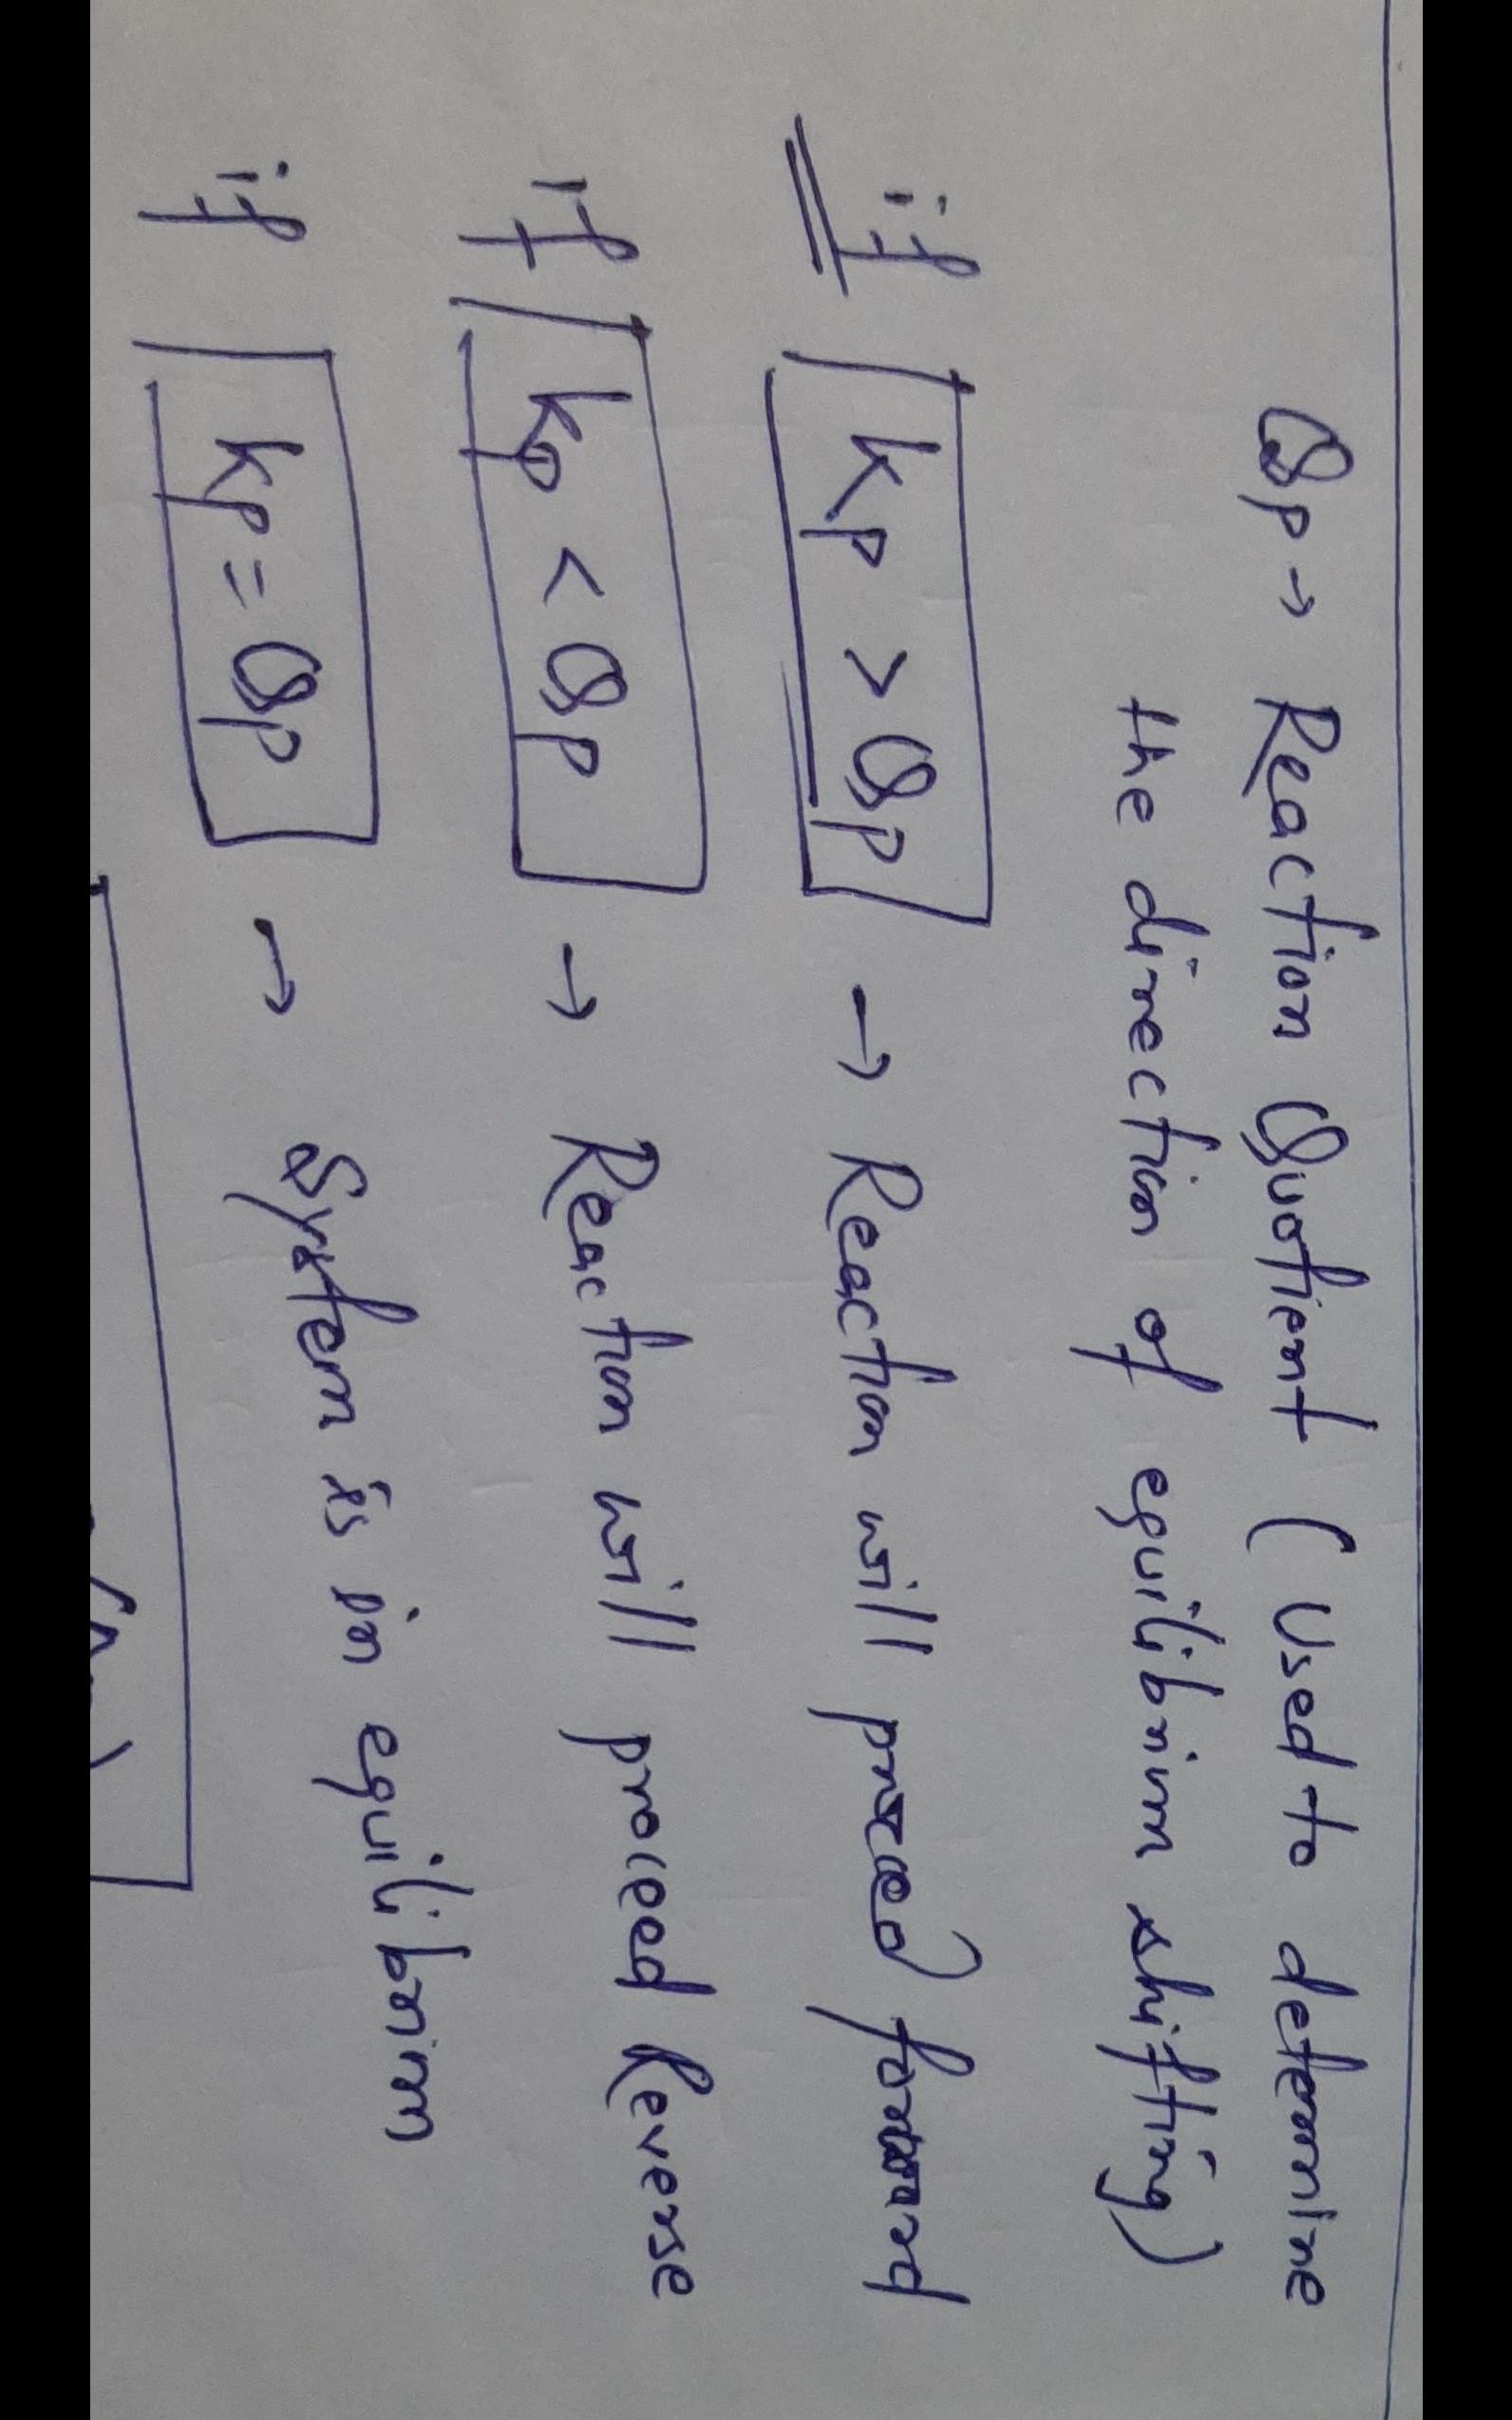 Qp → Reaction Quotient (Used to determine
the direction of equilibrium shifting)
if Kp > Qp → Reaction will proceed forward
if Kp < Qp → Reaction will proceed Reverse
if Kp = Qp → System is in equilibrium